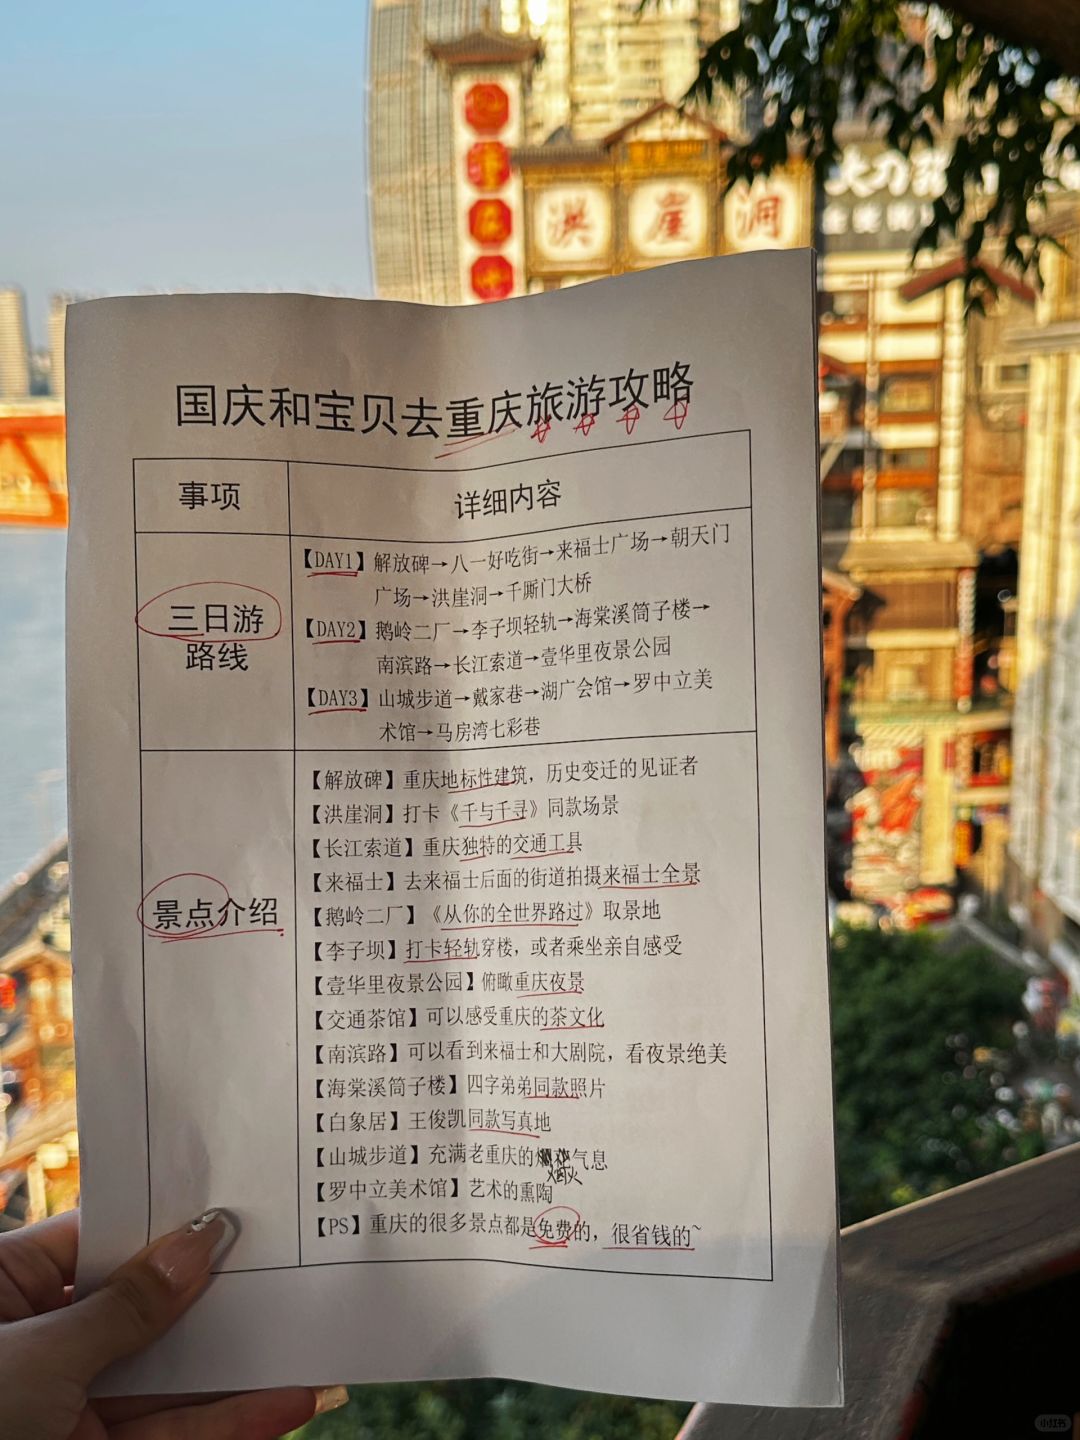 洪崖洞
国庆和宝贝去重庆旅游攻略
事项
详细内容
三日游
路线
【DAY1】解放碑→八一好吃街→来福士广场→朝天门
广场→洪崖洞→千厮门大桥
【DAY2】鹅岭二厂→李子坝轻轨→海棠溪筒子楼→
南滨路→长江索道→壹华里夜景公园
【DAY3】山城步道→戴家巷→湖广会馆→罗中立美
术馆→马房湾七彩巷
景点介绍
【解放碑】重庆地标性建筑，历史变迁的见证者
【洪崖洞】打卡《千与千寻》同款场景
【长江索道】重庆独特的交通工具
【来福士】去来福士后面的街道拍摄来福士全景
【鹅岭二厂】《从你的全世界路过》取景地
【李子坝】打卡轻轨穿楼，或者乘坐亲自感受
【壹华里夜景公园】俯瞰重庆夜景
【交通茶馆】可以感受重庆的茶文化
【南滨路】可以看到来福士和大剧院，看夜景绝美
【海棠溪筒子楼】四字弟弟同款照片
【白象居】王俊凯同款写真地
【山城步道】充满老重庆的烟火气息
【罗中立美术馆】艺术的熏陶
【PS】重庆的很多景点都是免费的，很省钱的~
小红书